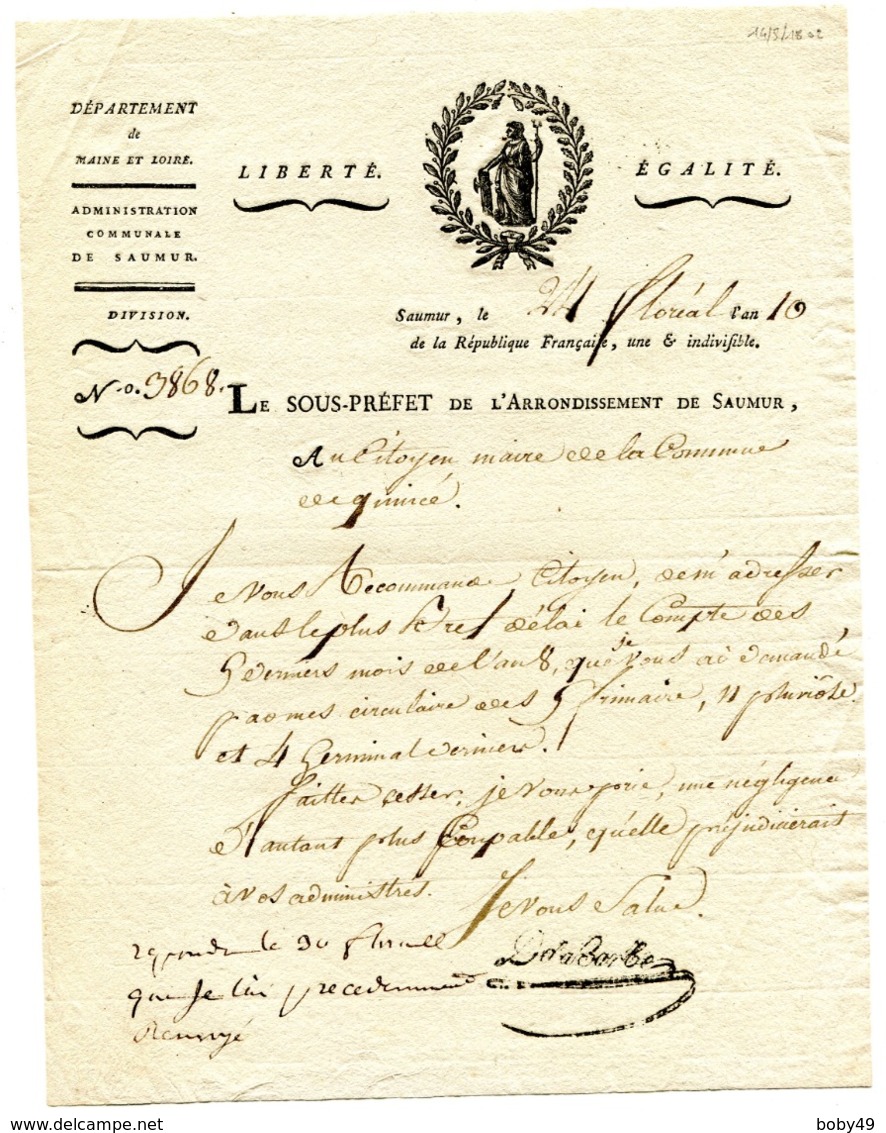 14/5/1802
DÉPARTEMENT
de
MAINE ET LOIRE.
ADMINISTRATION
COMMUNALE
DE SAUMUR.
DIVISION.
N.o. 3868.
LIBERTÉ.
ÉGALITÉ.
Saumur, le 24 floréal l'an 10
de la République Françaiſe, une & indiviſible.
LE SOUS-PRÉFET DE L'ARRONDISSEMENT DE SAUMUR,
Au Citoyen maire de la Commune
de quincé.
Je vous Recommande Citoyen, de m'adresser
dans le plus bref délai le Compte des
9 derniers mois de l'an 8, que je vous ai demandé
par mes circulaire des 9 frimaire, 11 pluviôse
et 4 Germinal derniers.
faittes cesser, je vous prie, une négligence
d'autant plus Coupable, qu'elle préjudicierait
à vos administrés.
Je vous Salue.
DelaBarbe
repondu le 30 floreal
que je lai precedemment
Renvoyé
delcampe.net
boby49